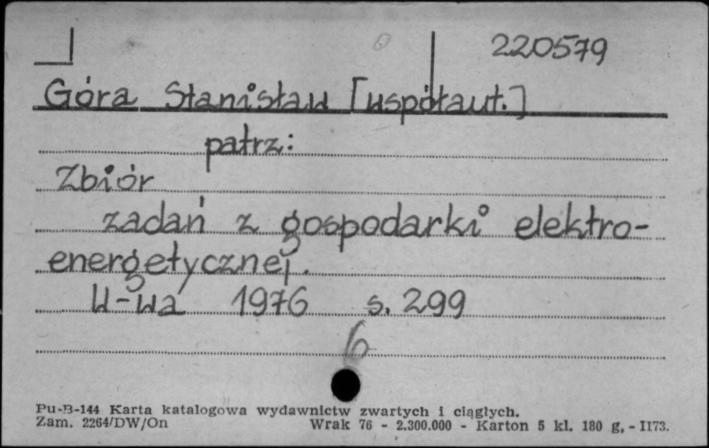 220579
Góra Stanisław [współaut.]
patrz:
Zbiór
zadań z gospodarki elektro-
energetycznej.
W-wa 1976 s. 299
6
Pu-B-144 Karta katalogowa wydawnictw zwartych i ciągłych.
Zam. 2264/DW/On Wrak 76 - 2.300.000 - Karton 5 kl. 180 g, - II73.